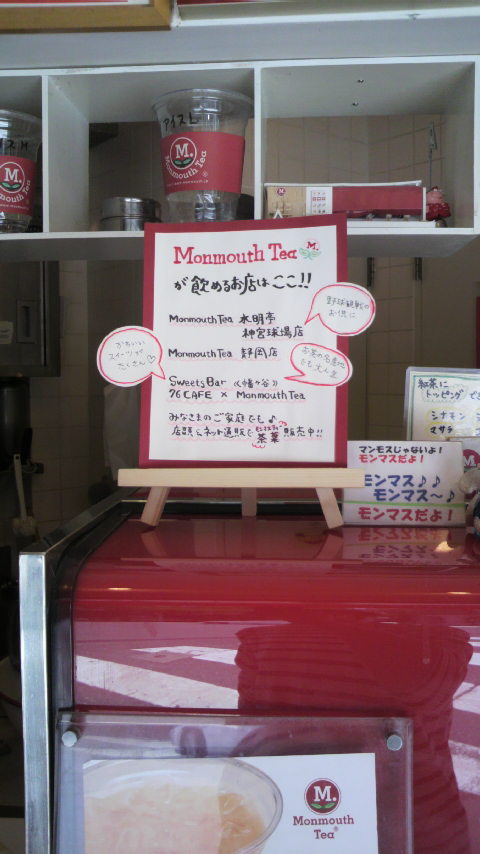 アイスL
M.
Monmouth Tea
M.
Monmouth Tea
Monmouth Tea
が飲めるお店はここ!!
Monmouth Tea 水明亭
神宮球場店
野球観戦の
お供に
Monmouth Tea 静岡店
お茶の名産地
でも大人気
かわいい
スイーツが
たくさん♡
Sweets Bar 《幡ヶ谷》
76CAFE × Monmouth Tea
みなさまのご家庭でも♪
店頭&ネット通販で 茶葉 販売中!!
紅茶に
トッピング でき
シナモン
マサラ
マンモスじゃないよ!
モンマスだよ!
モンマス♪♪
モンマス〜♪
モンマスだよ!
M.
Monmouth
Tea®